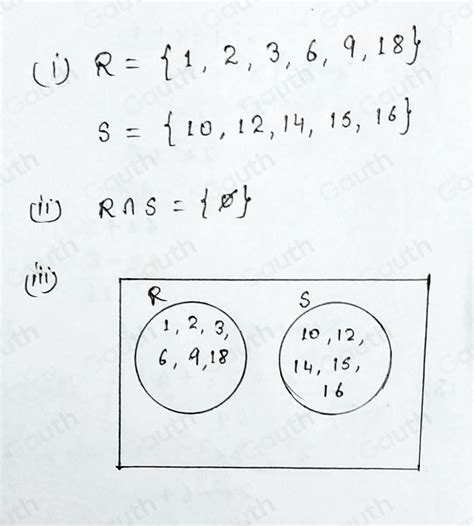 (i) R = {1, 2, 3, 6, 9, 18}
S = {10, 12, 14, 15, 16}
(ii) R ∩ S = {∅}
(iii)
R S
1, 2, 3,
6, 9, 18
10, 12,
14, 15,
16
Gauth